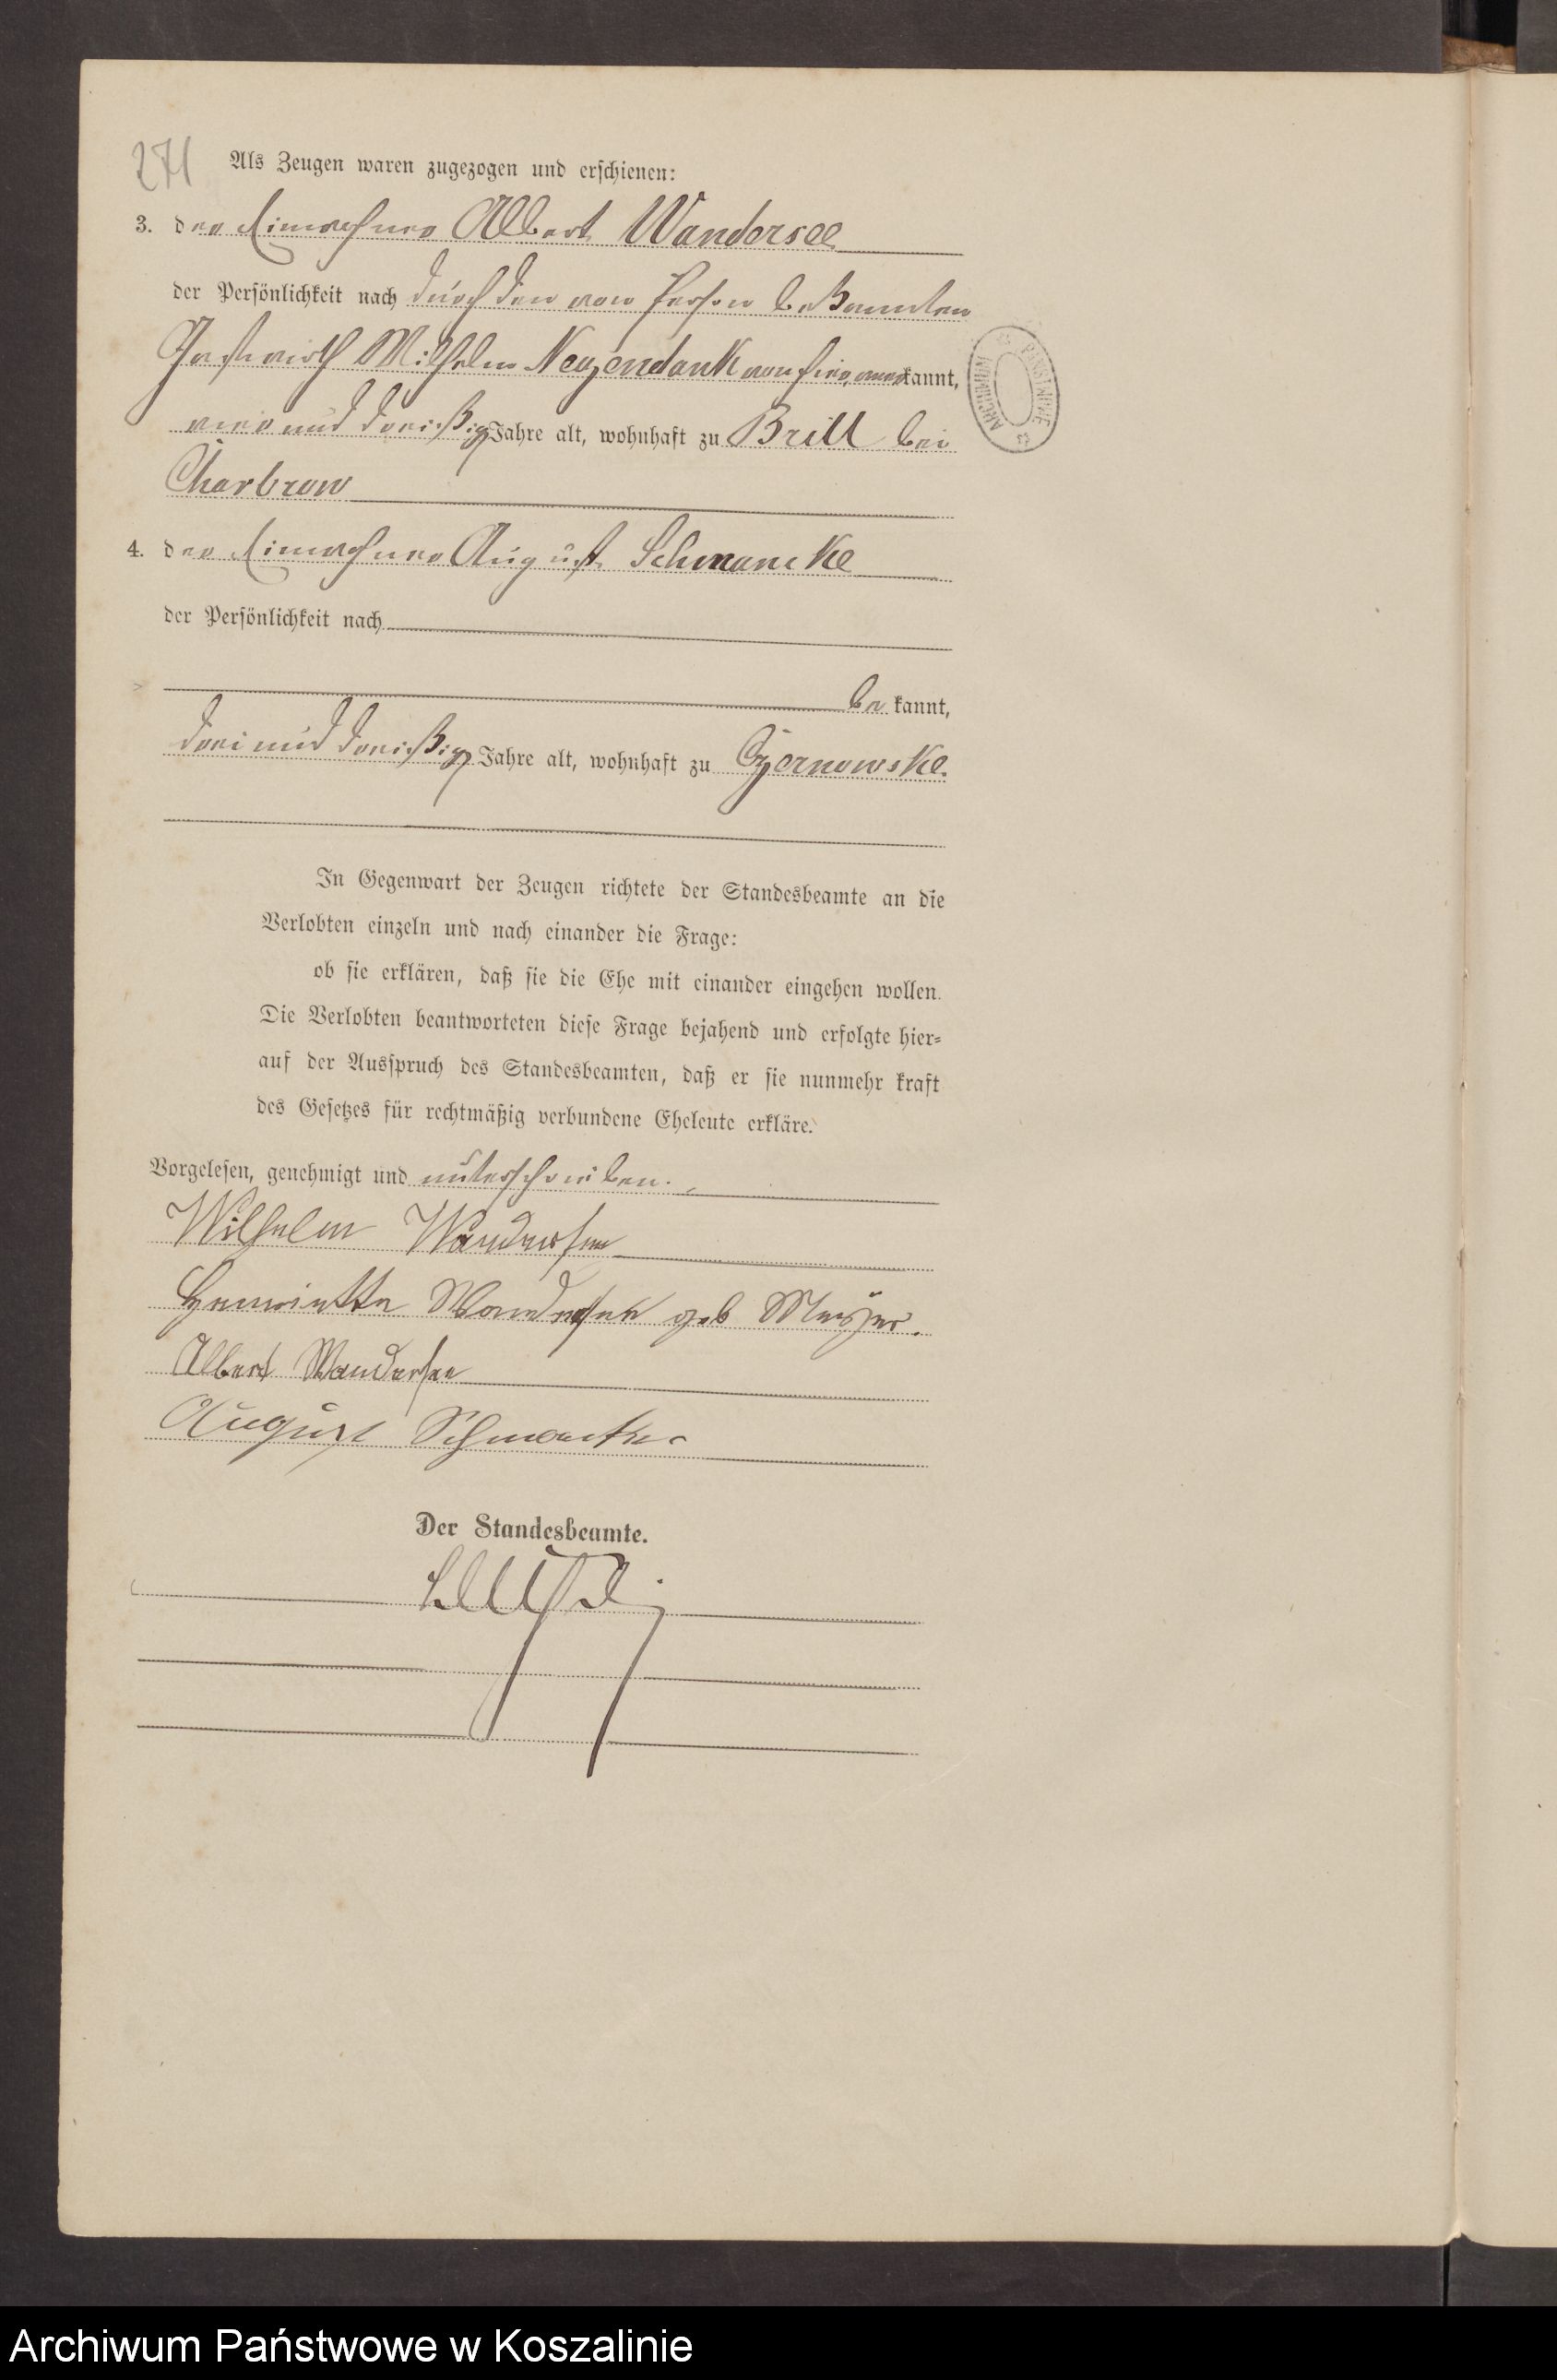 271 Als Zeugen waren zugezogen und erschienen:
3. der Einwohner Albert Wandersee
der Persönlichkeit nach durch den von Person bekannten
Gastwirth Wilhelm Neyendank von hier anerkannt,
vier und dreißig Jahre alt, wohnhaft zu Brill bei
Charbrow
4. der Einwohner August Schmancke
der Persönlichkeit nach
be kannt,
drei und dreißig Jahre alt, wohnhaft zu Czernowske.
In Gegenwart der Zeugen richtete der Standesbeamte an die
Verlobten einzeln und nach einander die Frage:
ob sie erklären, daß sie die Ehe mit einander eingehen wollen.
Die Verlobten beantworteten diese Frage bejahend und erfolgte hier-
auf der Ausspruch des Standesbeamten, daß er sie nunmehr kraft
des Gesetzes für rechtmäßig verbundene Eheleute erkläre.
Vorgelesen, genehmigt und unterschrieben.
Wilhelm Wandersee
Henriette Wandersee geb
Albert Wandersee
August
Der Standesbeamte.
ARCHIWUM PAŃSTWOWE
Archiwum Państwowe w Koszalinie